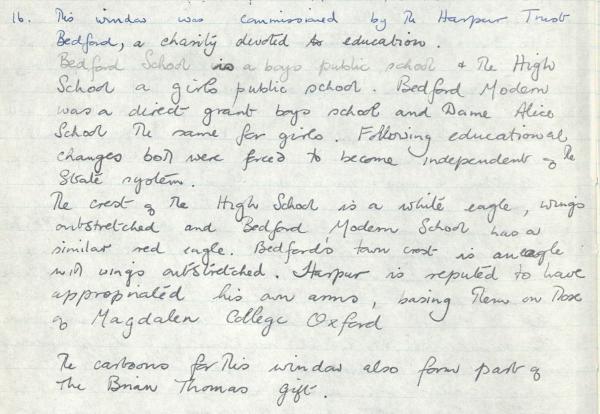 16. This window was commissioned by the Harpur Trust
Bedford, a charity devoted to education.
Bedford School is a boys public school & the High
School a girls public school. Bedford Modern
was a direct grant boys school and Dame Alice
School the same for girls. Following educational
changes both were forced to become independent of the
State system.
The crest of the High School is a white eagle, wings
outstretched and Bedford Modern School has a
similar red eagle. Bedford's town crest is an eagle
with wings outstretched. Harpur is reputed to have
appropriated his own arms, basing them on those
of Magdalen College Oxford
The cartoons for this window also form part of
the Brian Thomas gift.